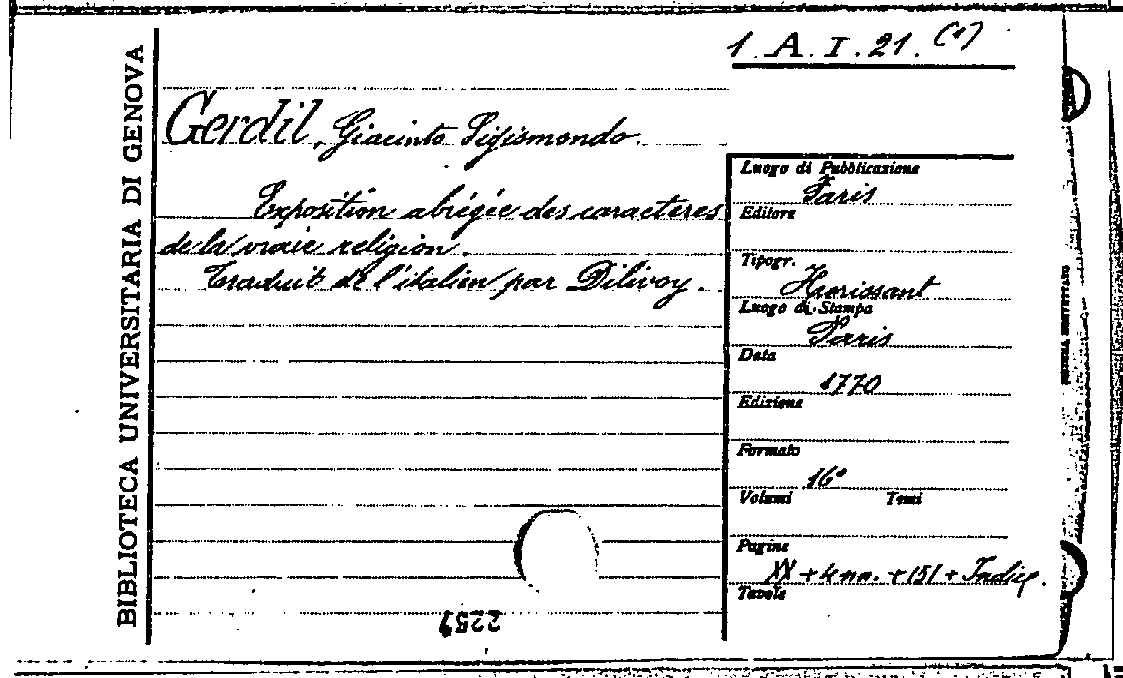 BIBLIOTECA UNIVERSITARIA DI GENOVA
1. A. I. 21. (1)
Gerdil, Giacinto Sigismondo.
Exposition abrégée des caractères
de la vraie religion.
Traduit de l'italien par Dilivoy.
Luogo di Pubblicazione
Paris
Editore
Tipogr.
Herissant
Luogo di Stampa
Paris
Data
1770
Edizione
Formato
16°
Volumi Tomi
Pagine
XX + 4 nn. + 151 + Indice.
Tavole